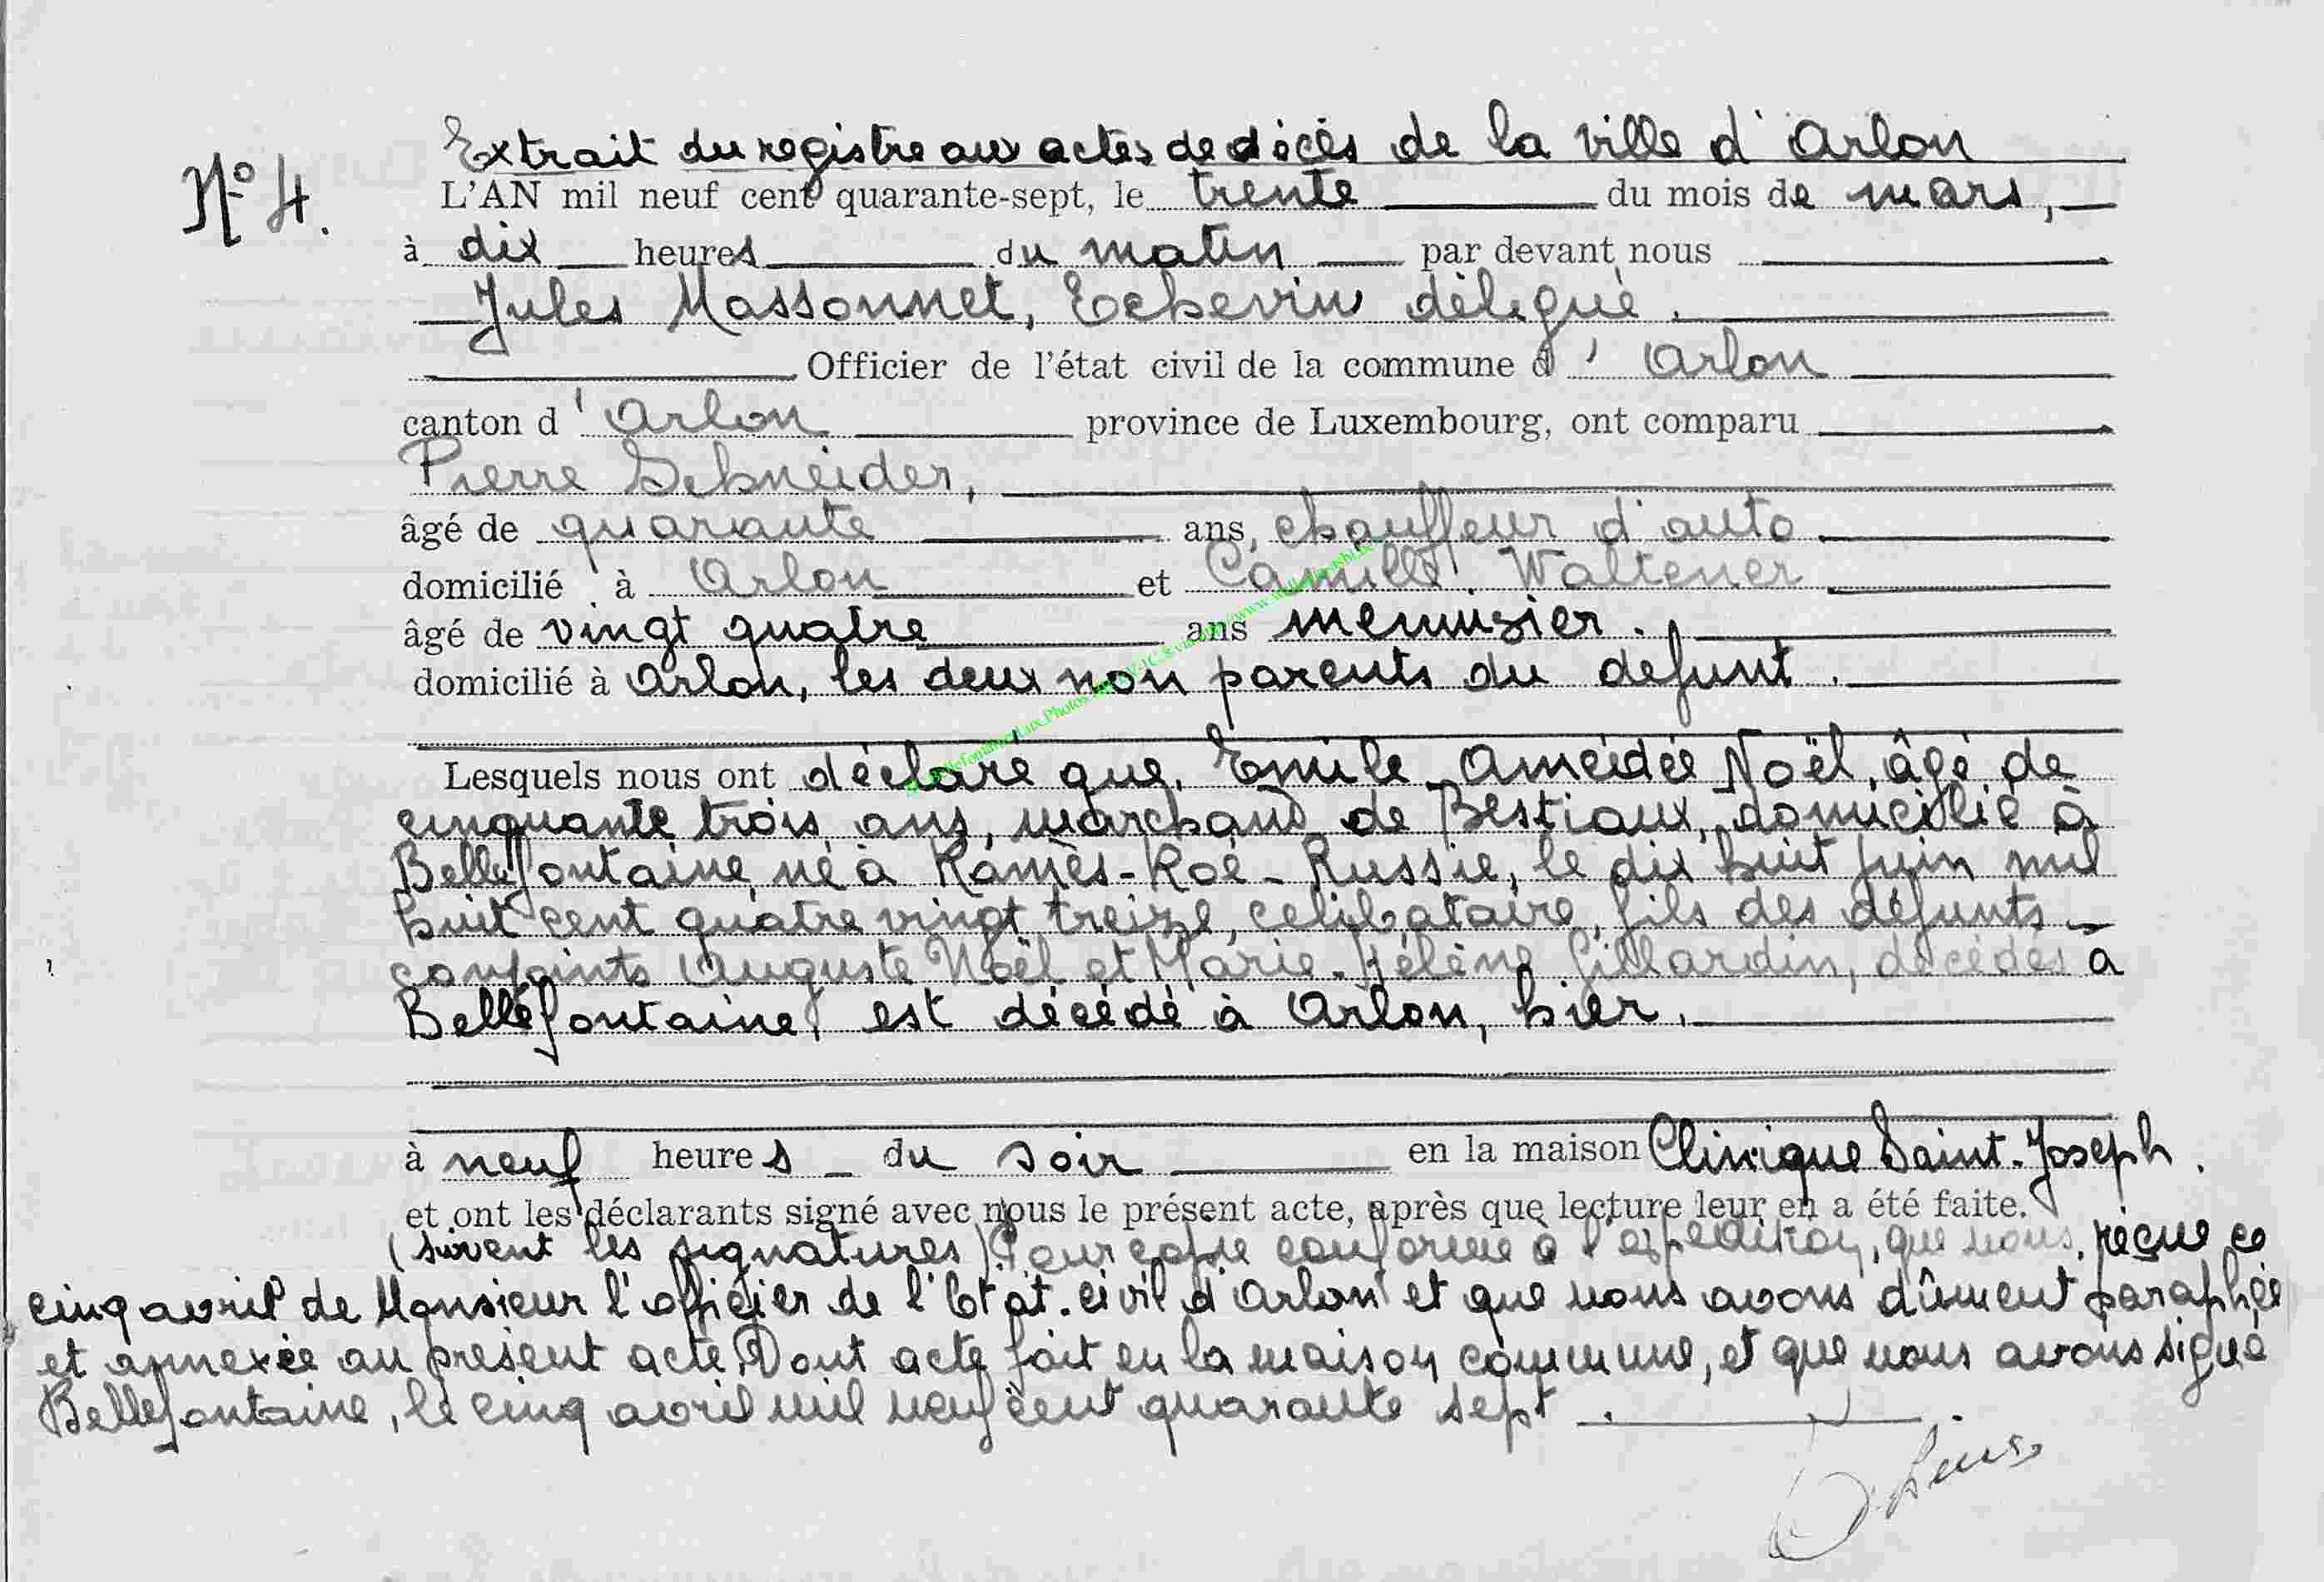 Extrait du registre aux actes de décès de la ville d'Arlon
N° 4.
L'AN mil neuf cent quarante-sept, le trente du mois de mars,
à dix heures du matin par devant nous
Jules Massonnet, Echevin délégué.
Officier de l'état civil de la commune d'Arlon
canton d'Arlon province de Luxembourg, ont comparu
Pierre Schneider,
âgé de quarante ans, chauffeur d'auto
domicilié à Arlon et Camille Waltener
âgé de vingt quatre ans menuisier.
domicilié à Arlon, les deux non parents du defunt.
Lesquels nous ont déclaré que, Emile Amédée Noël, âgé de
cinquante trois ans, marchand de Bestiaux, domicilié à
Bellefontaine né à Ramès-Koé-Russie, le dix huit juin mil
huit cent quatre vingt treize, celibataire, fils des défunts
conjoints Auguste Noël et Marie-Hélène Gillardin, décédés à
Bellefontaine, est décédé à Arlon, hier.
à neuf heures du soir en la maison Clinique Saint-Joseph.
et ont les déclarants signé avec nous le présent acte, après que lecture leur en a été faite.
(suivent les signatures) Pour copie conforme à l'expédition, que nous, reçue ce
cinq avril de Monsieur l'officier de l'Etat-civil d'Arlon et que nous avons dûment paraphée
et annexée au présent acte. Dont acte fait en la maison commune, et que nous avons signé
Bellefontaine, le cinq avril mil neuf cent quarante sept.